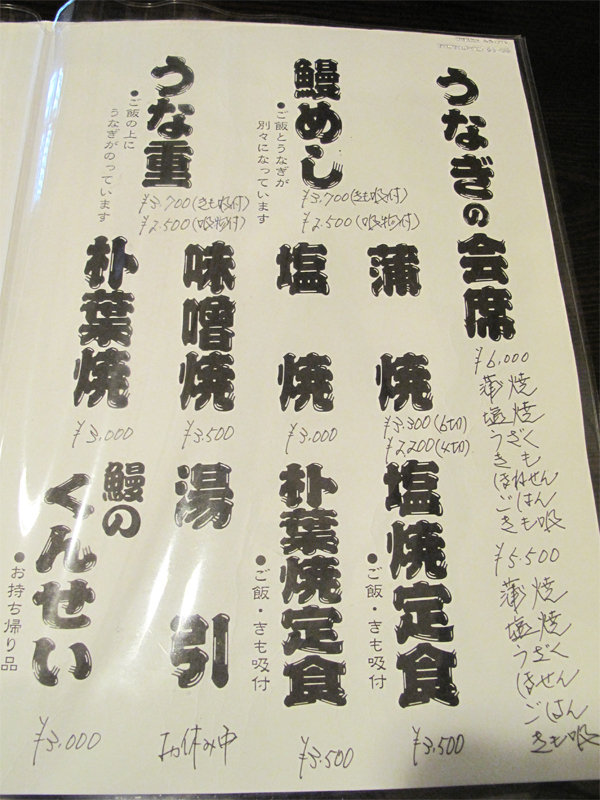 うなぎの会席
¥6,000
蒲焼
塩焼
うざく
きも
ほねせん
ごはん
きも吸
¥5.500
蒲焼
塩焼
うざく
ほせん
ごはん
きも吸
鰻めし
●ご飯とうなぎが
別々になっています
¥3,700(きも吸付)
¥2,500(吸物付)
うな重
●ご飯の上に
うなぎがのっています
¥3,700(きも吸付)
¥2,500(吸物付)
蒲焼
¥3,300(6切)
¥2,200(4切)
塩焼
¥3,000
味噌焼
¥3,500
朴葉焼
¥3,000
塩焼定食
●ご飯・きも吸付
¥3,500
朴葉焼定食
●ご飯・きも吸付
¥3,500
湯引
お休み中
鰻の
くんせい
●お持ち帰り品
¥3,000